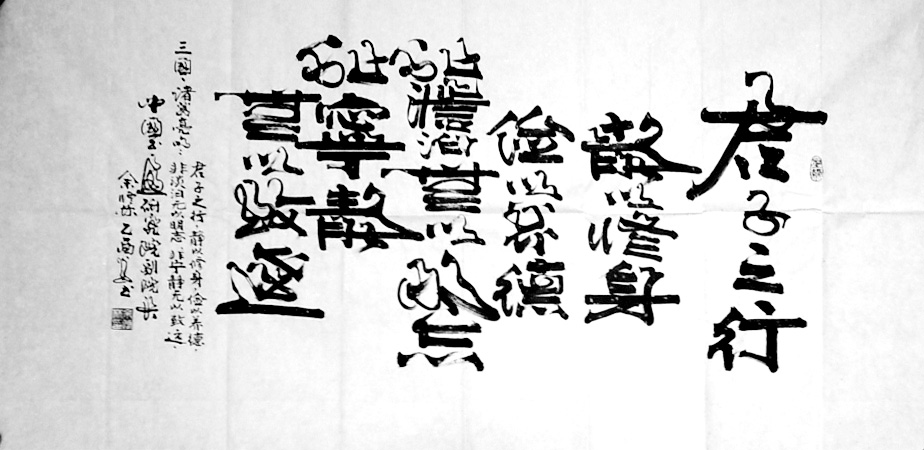 君子之行
靜以修身
俭以养德
非澹泊無以明志
非寧靜
無以致遠
三國·諸葛亮
君子之行·静以修身俭以养德·
非淡泊无以明志·非宁静无以致远·
中國书画研究院副院长
乙酉